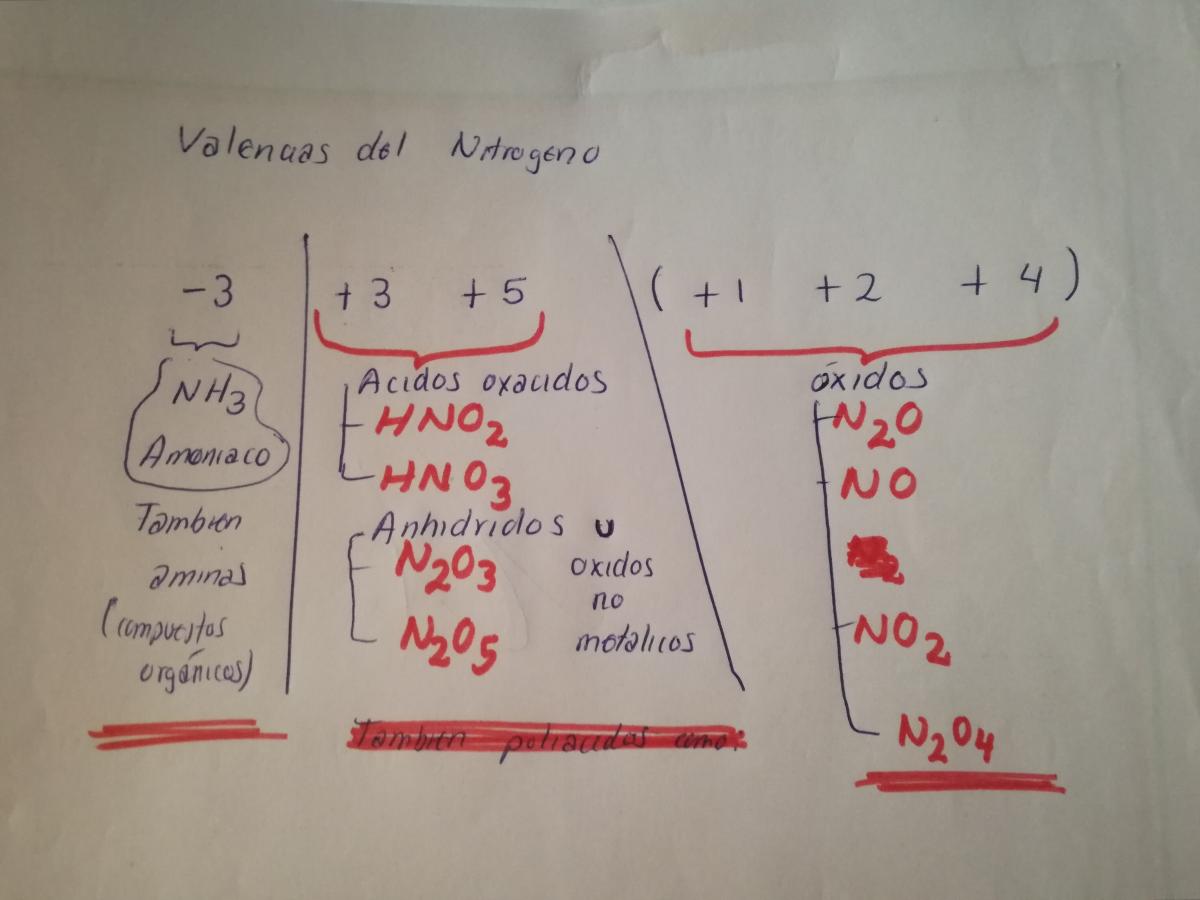 Valencias del Nitrogeno
-3
NH3
Amoniaco
Tambien
aminas
(compuestos
orgánicos)
+3 +5
Acidos oxacidos
HNO2
HNO3
Anhidridos u
oxidos
no
metalicos
N2O3
N2O5
Tambien poliacidos como:
(+1 +2 +4)
óxidos
N2O
NO
NO2
N2O4